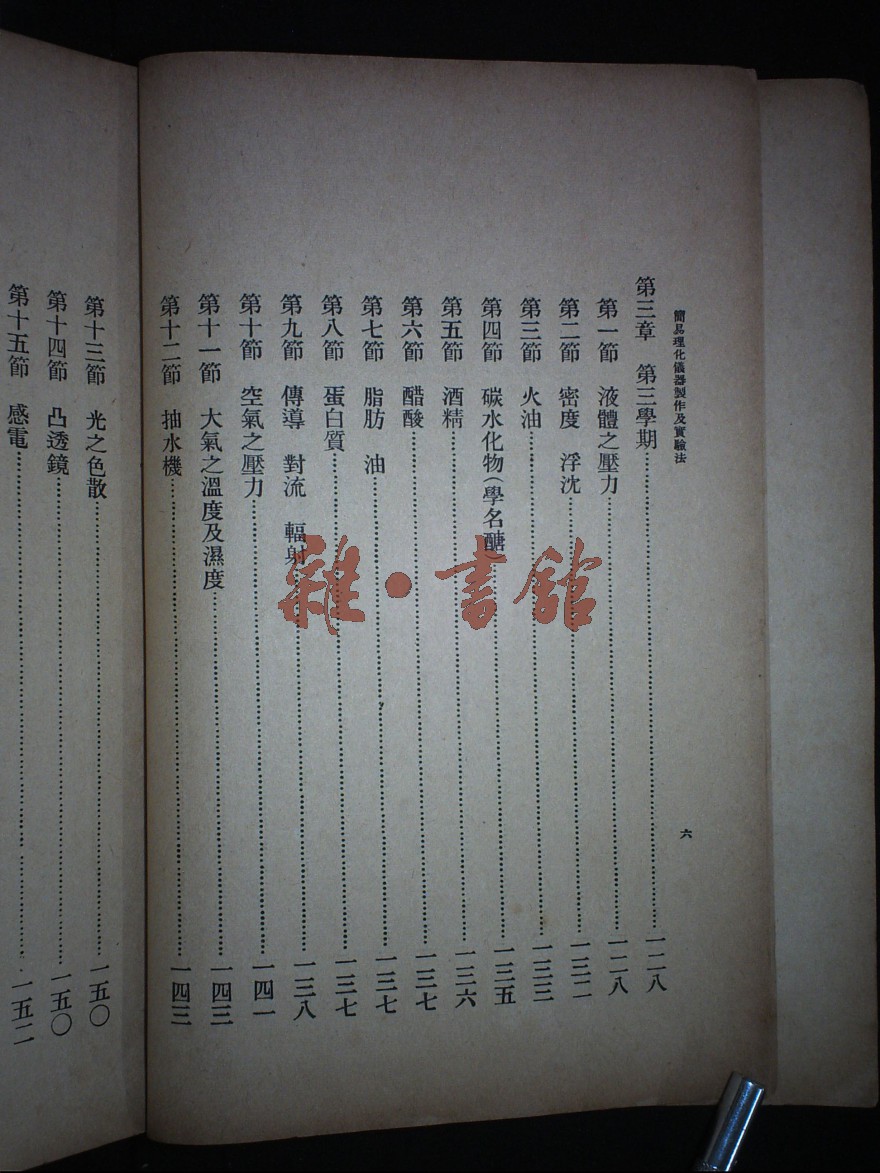 簡易理化儀器製作及實驗法
六
第三章 第三學期……一二八
第一節 液體之壓力……一二八
第二節 密度 浮沈……一三二
第三節 火油……一三三
第四節 碳水化物(學名醣)……一三五
第五節 酒精……一三六
第六節 醋酸……一三七
第七節 脂肪 油……一三七
第八節 蛋白質……一三七
第九節 傳導 對流 輻射……一三八
第十節 空氣之壓力……一四一
第十一節 大氣之溫度及濕度……一四三
第十二節 抽水機……一四三
第十三節 光之色散……一五〇
第十四節 凸透鏡……一五〇
第十五節 感電……一五二
雜·書館